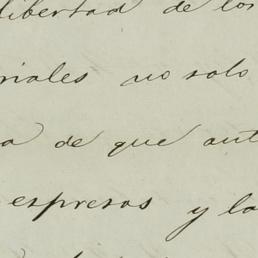 libertad de los
riales no solo
a de que ant
espresos y la